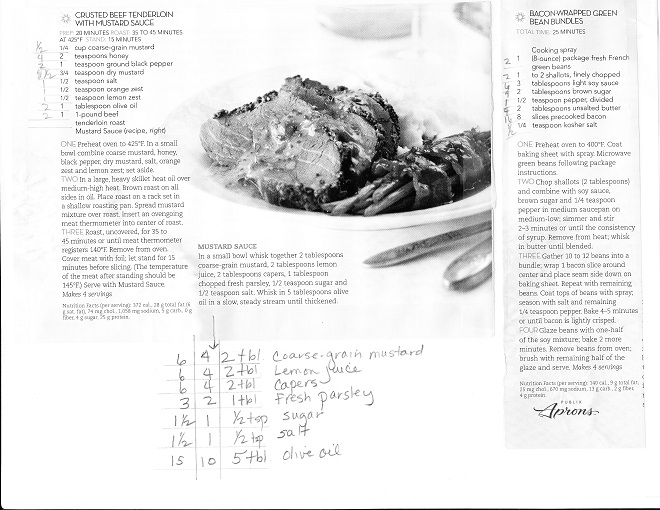 CRUSTED BEEF TENDERLOIN
WITH MUSTARD SAUCE
PREP: 20 MINUTES ROAST: 35 TO 45 MINUTES
AT 425°F STAND: 15 MINUTES
1/2 1/4 cup coarse-grain mustard
4 2 teaspoons honey
2 1 teaspoon ground black pepper
3/4 teaspoon dry mustard
1 1/2 teaspoon salt
1 1/2 teaspoon orange zest
1 1/2 teaspoon lemon zest
2 1 tablespoon olive oil
2 1 1-pound beef
tenderloin roast
Mustard Sauce (recipe, right)
ONE Preheat oven to 425°F. In a small
bowl combine coarse mustard, honey,
black pepper, dry mustard, salt, orange
zest and lemon zest; set aside.
TWO In a large, heavy skillet heat oil over
medium-high heat. Brown roast on all
sides in oil. Place roast on a rack set in
a shallow roasting pan. Spread mustard
mixture over roast. Insert an ovengoing
meat thermometer into center of roast.
THREE Roast, uncovered, for 35 to
45 minutes or until meat thermometer
registers 140°F. Remove from oven.
Cover meat with foil; let stand for 15
minutes before slicing. (The temperature
of the meat after standing should be
145°F.) Serve with Mustard Sauce.
Makes 4 servings
Nutrition Facts (per serving): 372 cal., 28 g total fat (6
g sat. fat), 74 mg chol., 1,058 mg sodium, 5 g carb., 0 g
fiber, 4 g sugar, 25 g protein.
MUSTARD SAUCE
In a small bowl whisk together 2 tablespoons
coarse-grain mustard, 2 tablespoons lemon
juice, 2 tablespoons capers, 1 tablespoon
chopped fresh parsley, 1/2 teaspoon sugar and
1/2 teaspoon salt. Whisk in 5 tablespoons olive
oil in a slow, steady stream until thickened.
6 4 2 tbl Coarse-grain mustard
6 4 2 tbl Lemon juice
6 4 2 tbl Capers
3 2 1 tbl fresh parsley
1 1/2 1 1/2 tsp sugar
1 1/2 1 1/2 tsp salt
15 10 5 tbl olive oil
BACON-WRAPPED GREEN
BEAN BUNDLES
TOTAL TIME: 25 MINUTES
Cooking spray
2 1 (8-ounce) package fresh French
green beans
2 1 to 2 shallots, finely chopped
3 tablespoons light soy sauce
2 tablespoons brown sugar
1/2 teaspoon pepper, divided
2 tablespoons unsalted butter
8 slices precooked bacon
1/4 teaspoon kosher salt
ONE Preheat oven to 400°F. Coat
baking sheet with spray. Microwave
green beans following package
instructions.
TWO Chop shallots (2 tablespoons)
and combine with soy sauce,
brown sugar and 1/4 teaspoon
pepper in medium saucepan on
medium-low; simmer and stir
2–3 minutes or until the consistency
of syrup. Remove from heat; whisk
in butter until blended.
THREE Gather 10 to 12 beans into a
bundle; wrap 1 bacon slice around
center and place seam side down on
baking sheet. Repeat with remaining
beans. Coat tops of beans with spray;
season with salt and remaining
1/4 teaspoon pepper. Bake 4–5 minutes
or until bacon is lightly crisped.
FOUR Glaze beans with one-half
of the soy mixture; bake 2 more
minutes. Remove beans from oven;
brush with remaining half of the
glaze and serve. Makes 4 servings
Nutrition Facts (per serving): 140 cal., 9 g total fat,
25 mg chol., 670 mg sodium, 13 g carb., 2 g fiber,
4 g protein.
PUBLIX
Aprons